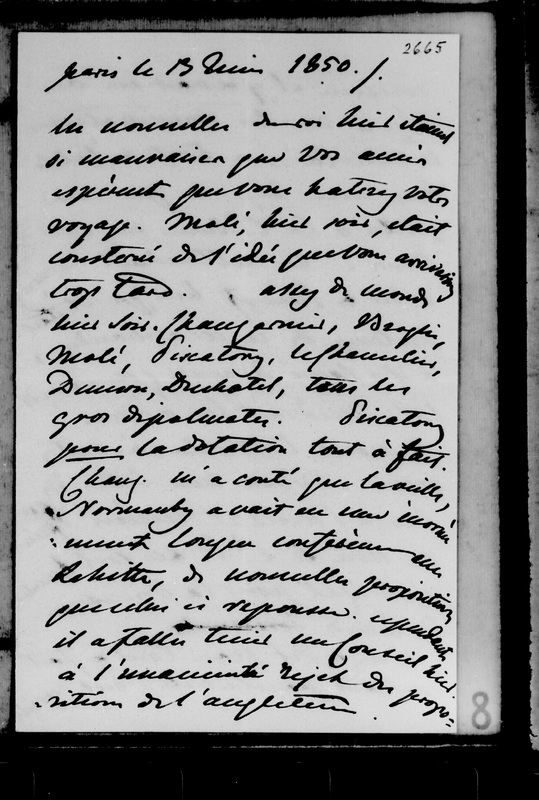 2665
Paris le 13 Juin 1850.
les nouvelles du roi hier étaient
si mauvaises que vos amis
espèrent que vous haterez votre
voyage. Molé, hier soir, était
consterné de l'idée que vous arriviez
trop tard. assez de monde
hier soir. Changarnier, Broglie,
Molé, Piscatory, 
Dumon, Duchatel, tous les
gros diplomates. Piscatory
pour la dotation tout à fait.
Chang. m'a conté que la veille,
Normanby avait eu une énormé
-ment longue conférence avec
Lahitte, de nouvelles propositions
que celui ci repousse. cependant
il a fallu tenir un Conseil hier.
à l'unanimité rejet des propo=
sitions de l'angleterre.
8